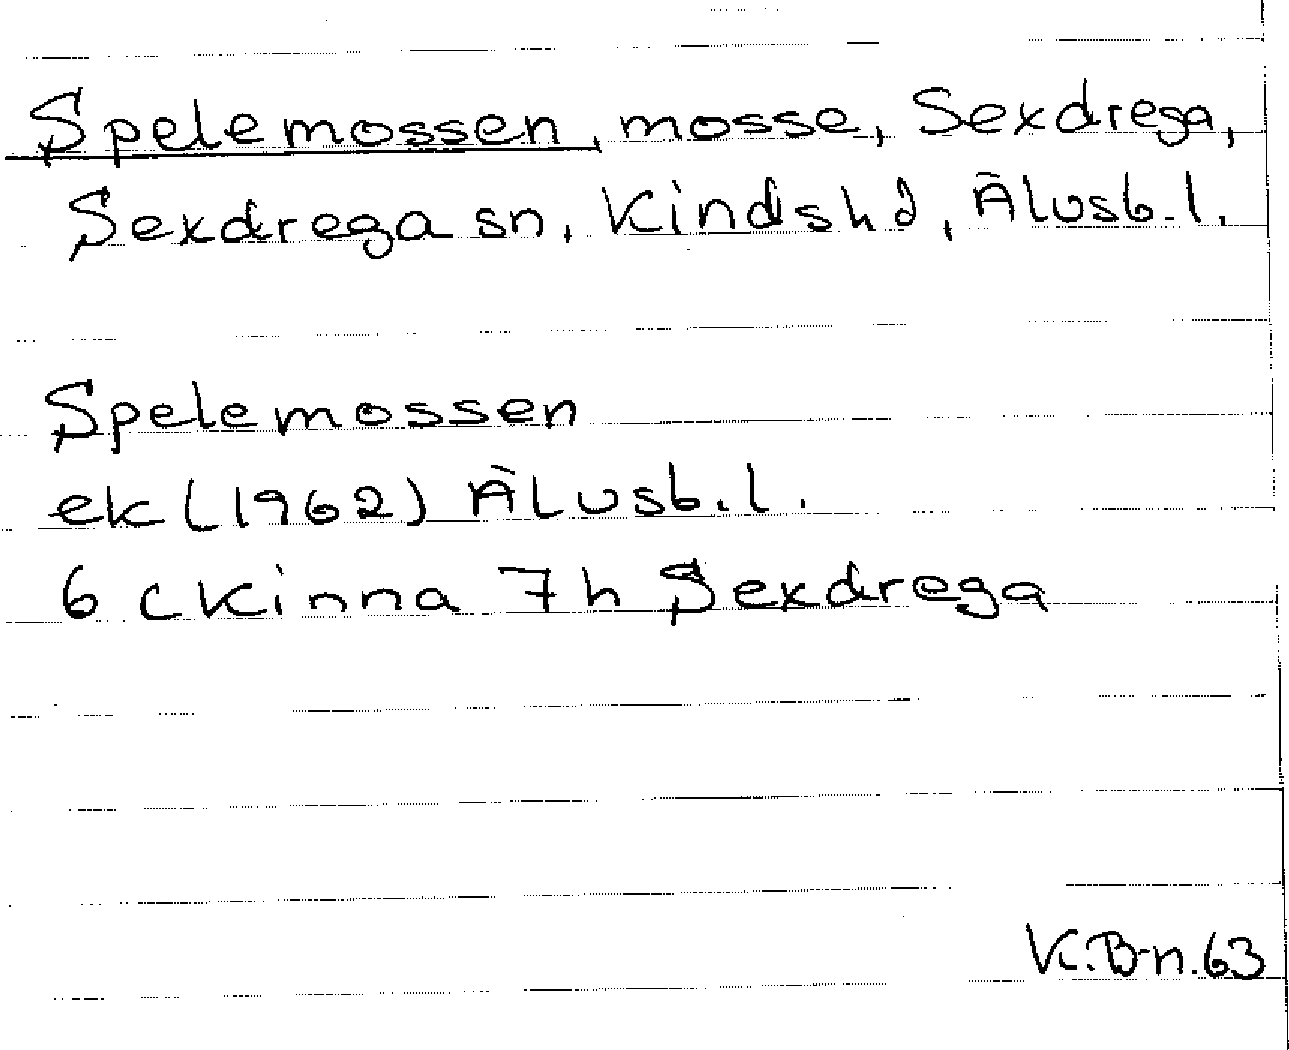 Spelemossen, mosse, Sexdrega,
Sexdrega sn, Kinds hd, Älvsb.l.
Spelemossen
ek (1962) Älvsb.l.
6 c Kinna 7 h Sexdrega
K.B-n.63